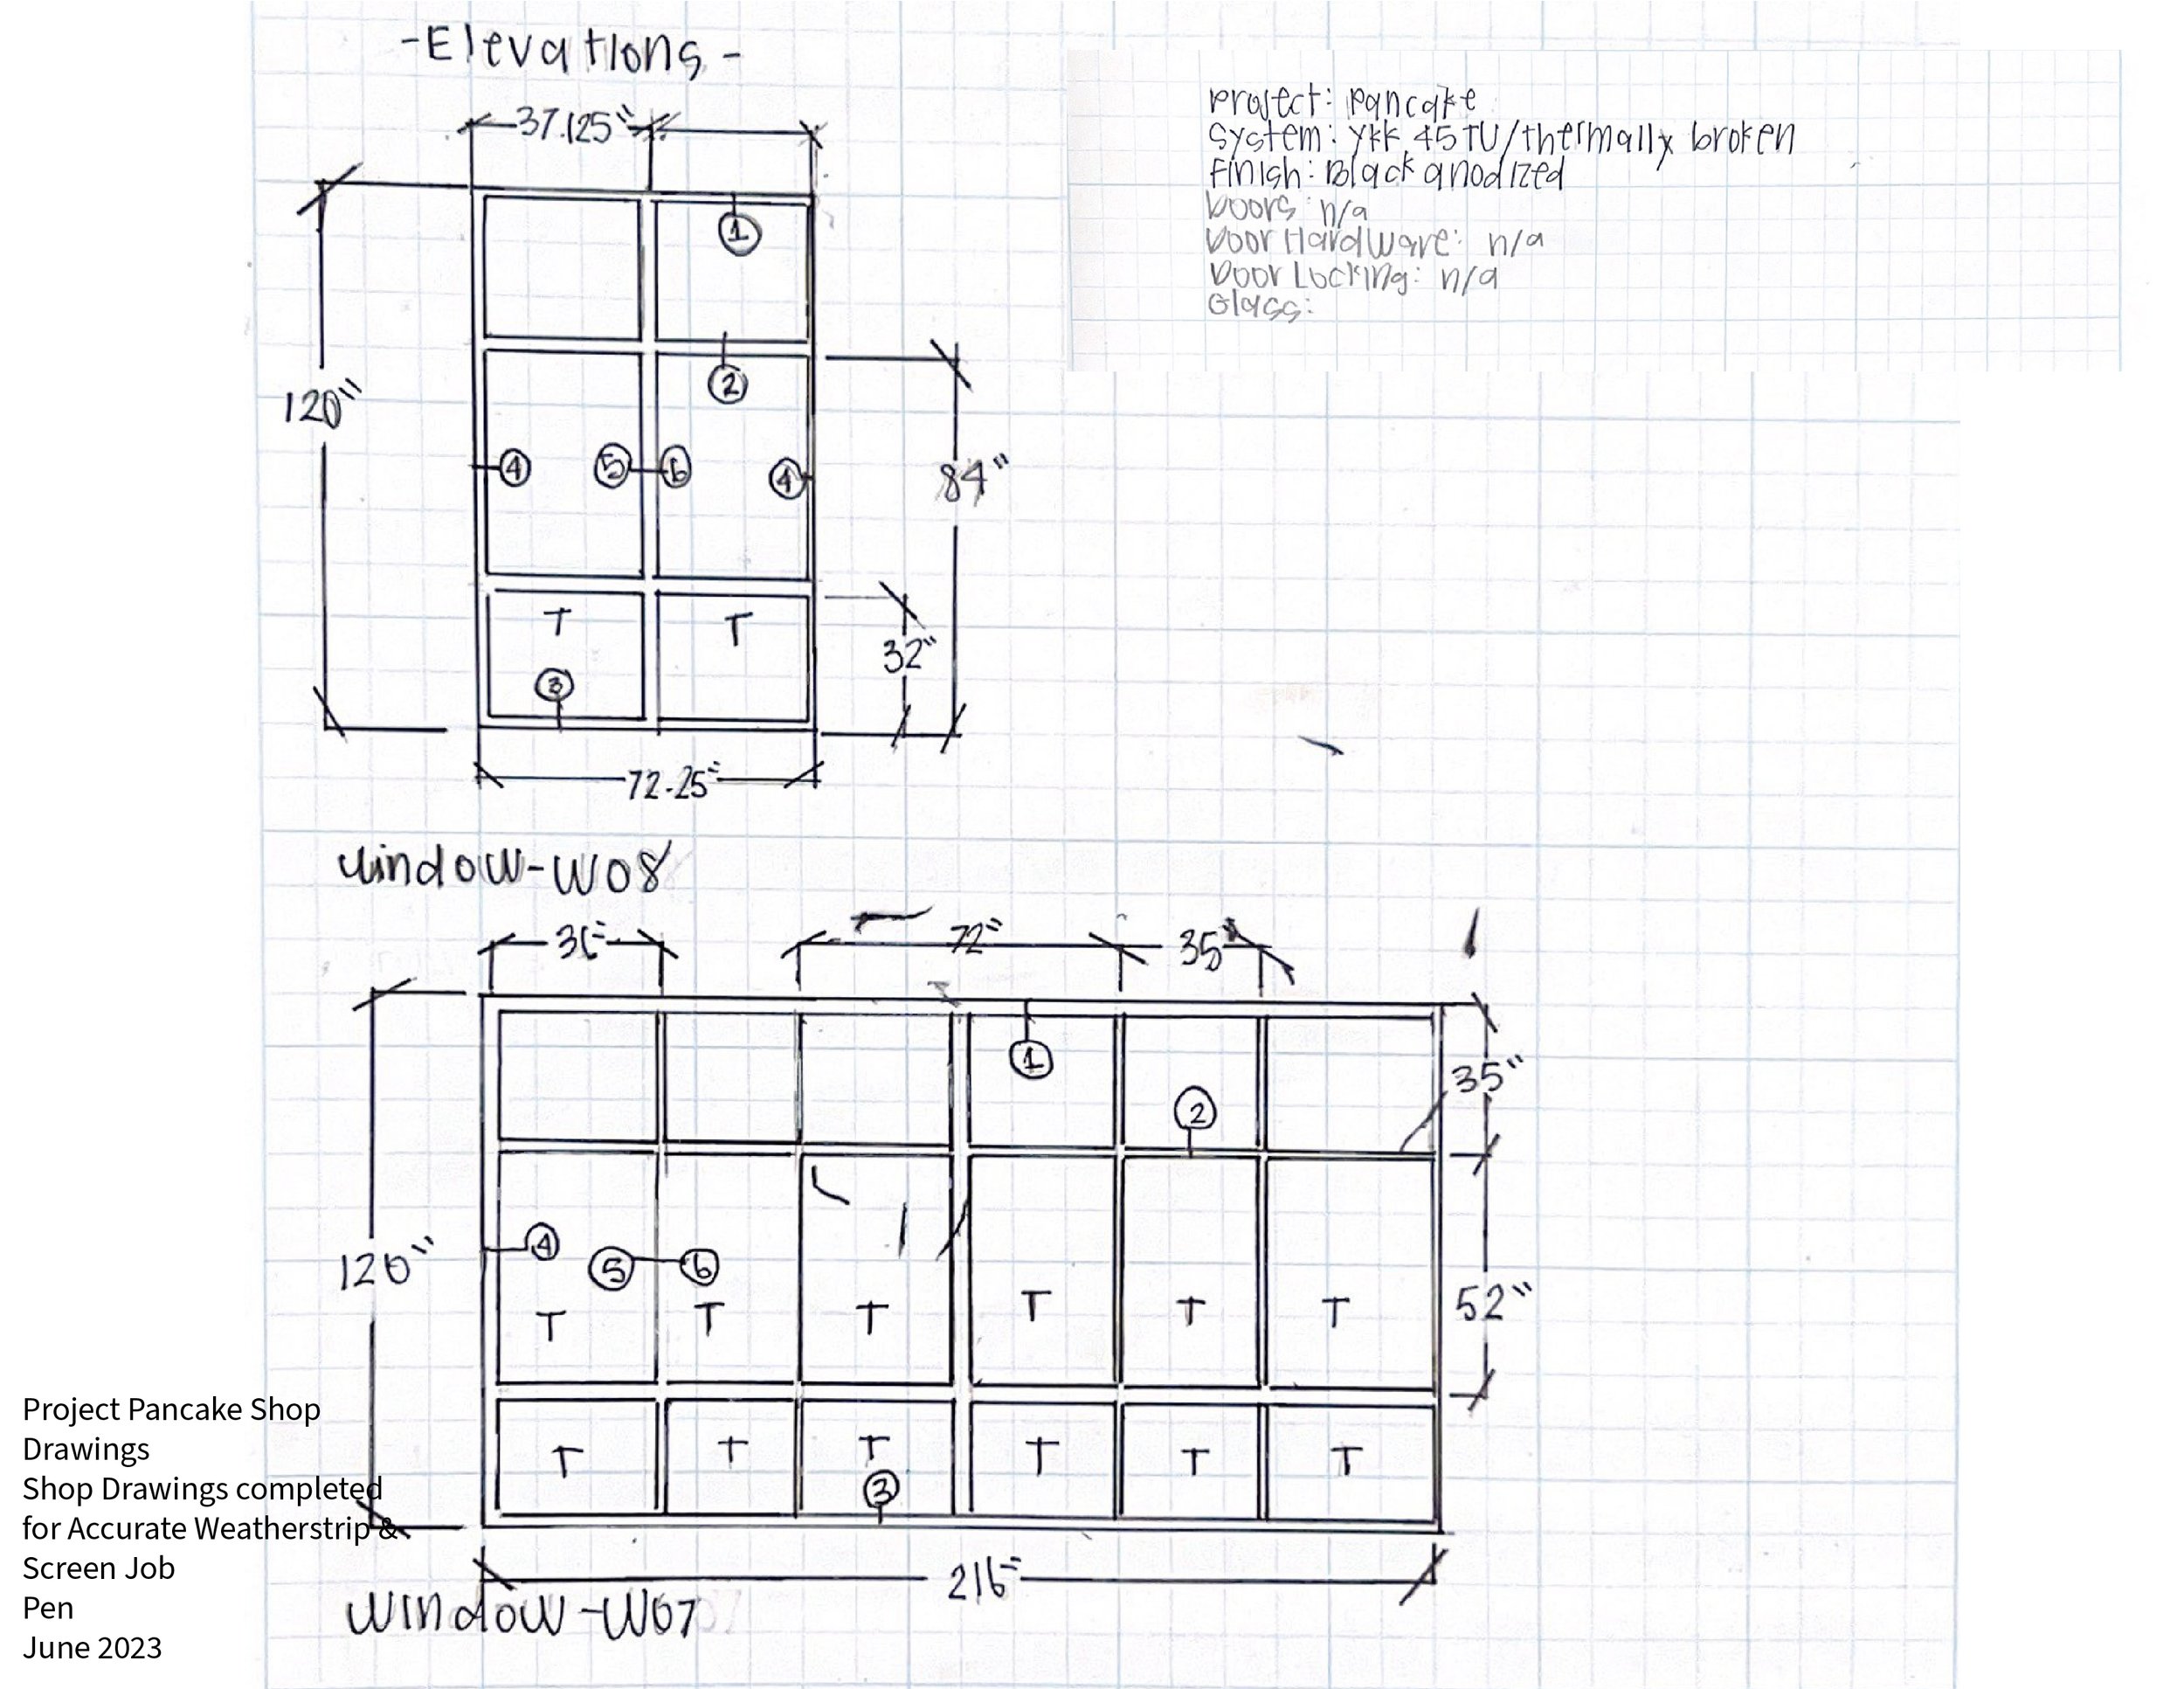 -Elevations-
37.125"
Project: Pancake
System: YKK 45TU/thermally broken
Finish: Black anodized
Doors: n/a
Door Hardware: n/a
Door Locking: n/a
Glass:
1
120"
2
4 5 6 4
84"
T T
32"
3
72.25"
Window-W08
72" 35"
1
35"
2
4
5 6
120"
T T T T T T
52"
T T T T T T
3
216"
Window-W07
Project Pancake Shop
Drawings
Shop Drawings completed
for Accurate Weatherstrip &
Screen Job
Pen
June 2023